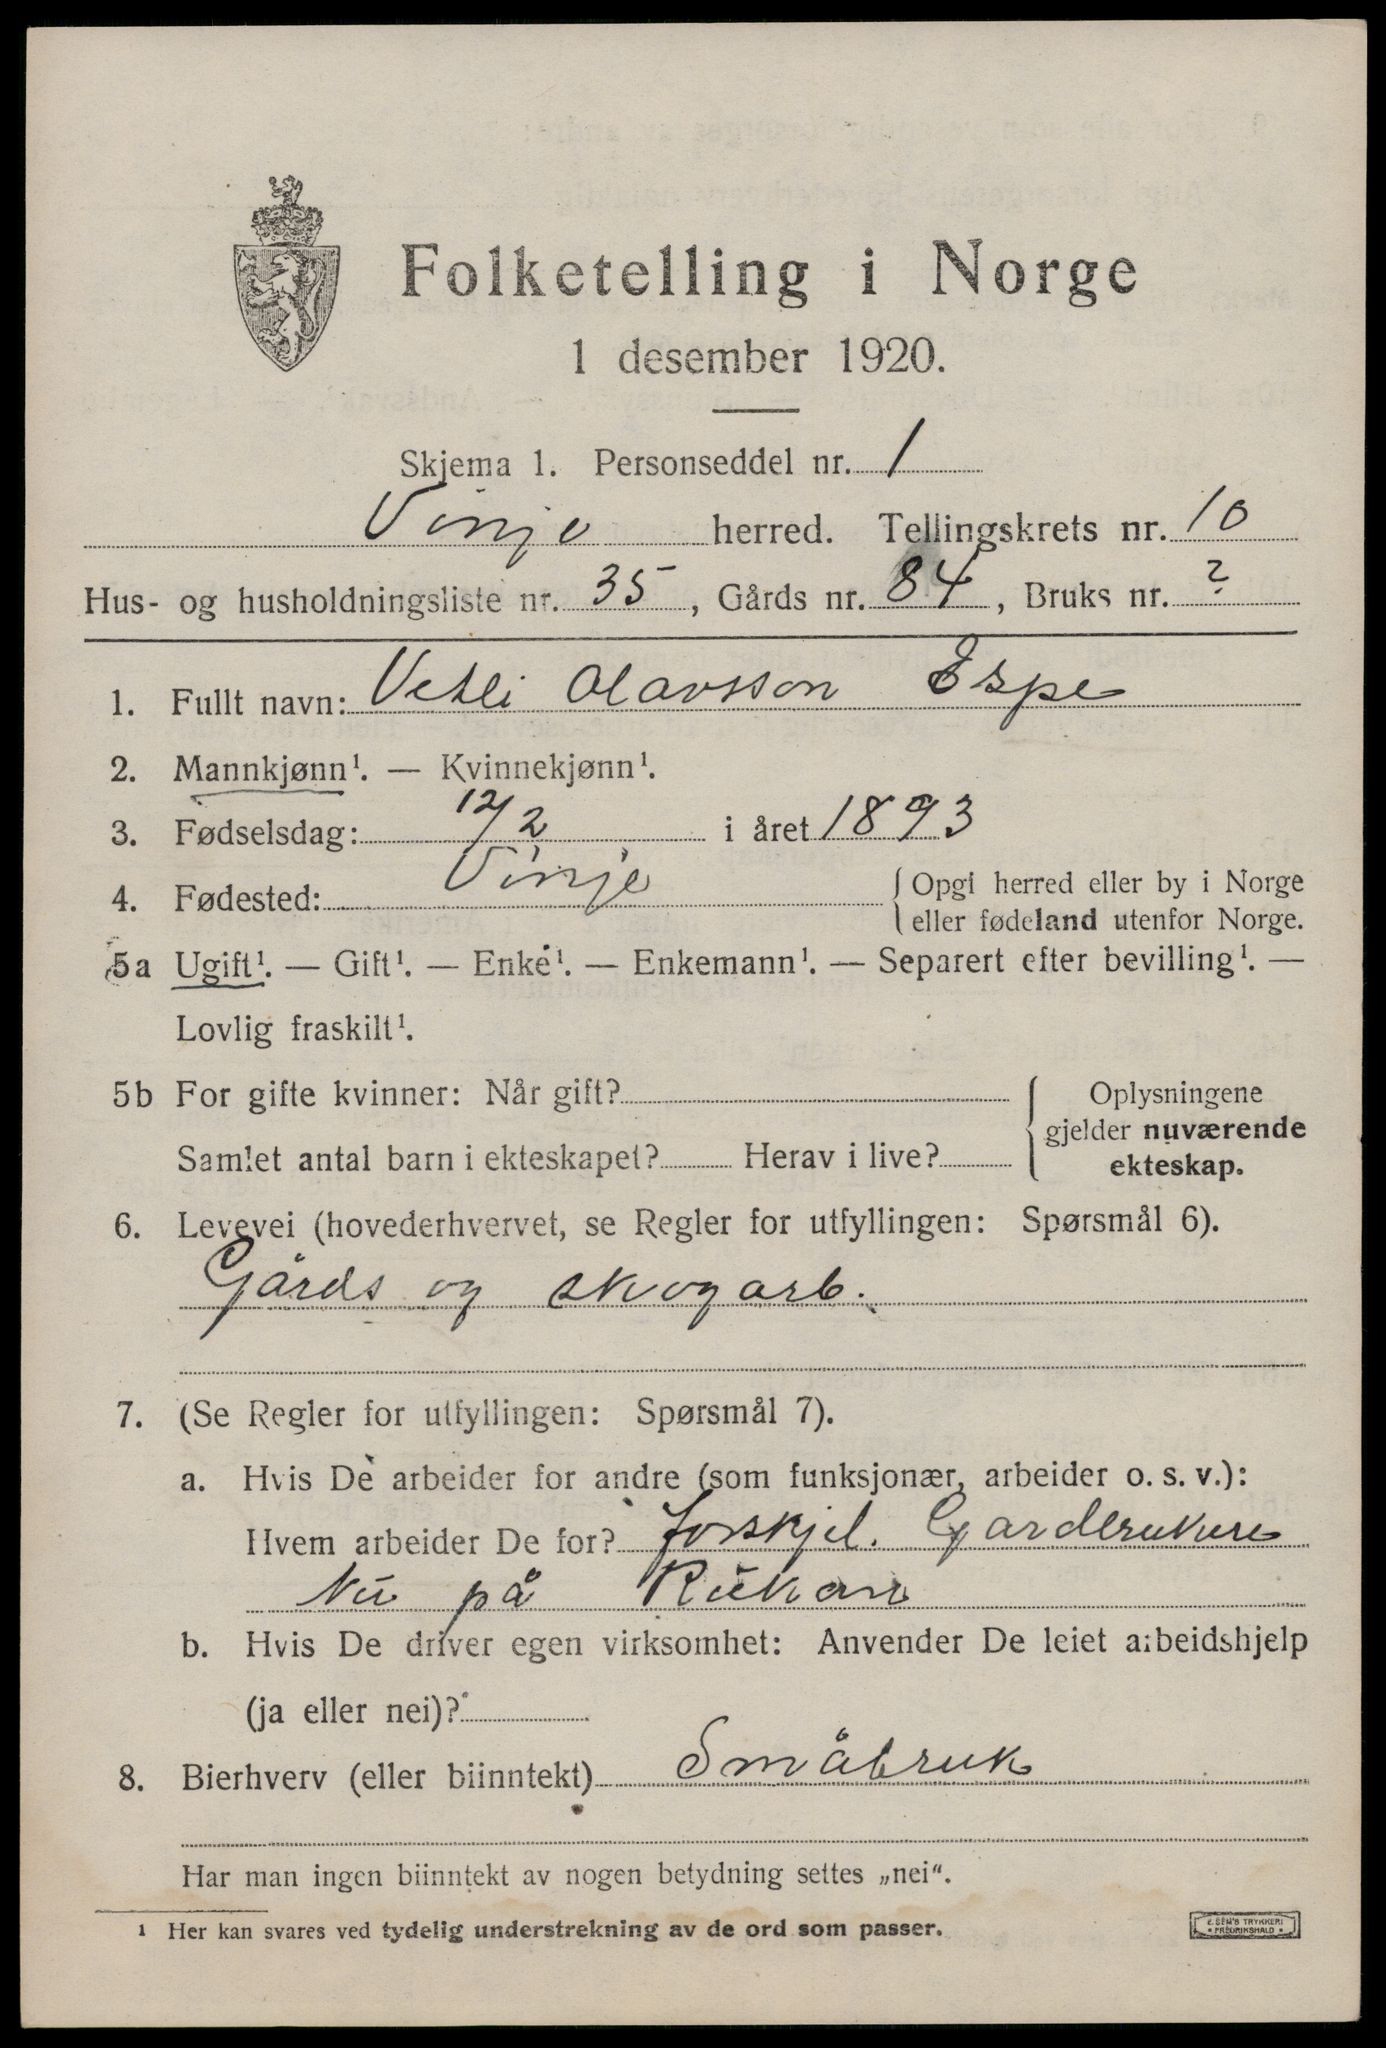 Folketelling i Norge
1 desember 1920.
Skjema 1. Personseddel nr. 1
Vinje herred. Tellingskrets nr. 10
Hus- og husholdningsliste nr. 35, Gårds nr. 84, Bruks nr. ?
1. Fullt navn: Vetli Olavsson Espe
2. Mannkjønn¹. — Kvinnekjønn¹.
3. Fødselsdag: 12/2 i året 1893
4. Fødested: Vinje { Opgi herred eller by i Norge
eller fødeland utenfor Norge.
5a Ugift¹. — Gift¹. — Enke¹. — Enkemann¹. — Separert efter bevilling¹. —
Lovlig fraskilt¹.
5b For gifte kvinner: Når gift?
Samlet antal barn i ekteskapet? Herav i live?
Oplysningene
gjelder nuværende
ekteskap.
6. Levevei (hovederhvervet, se Regler for utfyllingen: Spørsmål 6).
Gårds og skogarb.
7. (Se Regler for utfyllingen: Spørsmål 7).
a. Hvis De arbeider for andre (som funksjonær, arbeider o. s. v.):
Hvem arbeider De for? forskjel. Gardbrukere
Nu på Rukan
b. Hvis De driver egen virksomhet: Anvender De leiet arbeidshjelp
(ja eller nei)?
8. Bierhverv (eller biinntekt) Småbruk
Har man ingen biinntekt av nogen betydning settes „nei“.
¹ Her kan svares ved tydelig understrekning av de ord som passer.
E. SEM'S TRYKKERI
• FREDRIKSHALD •